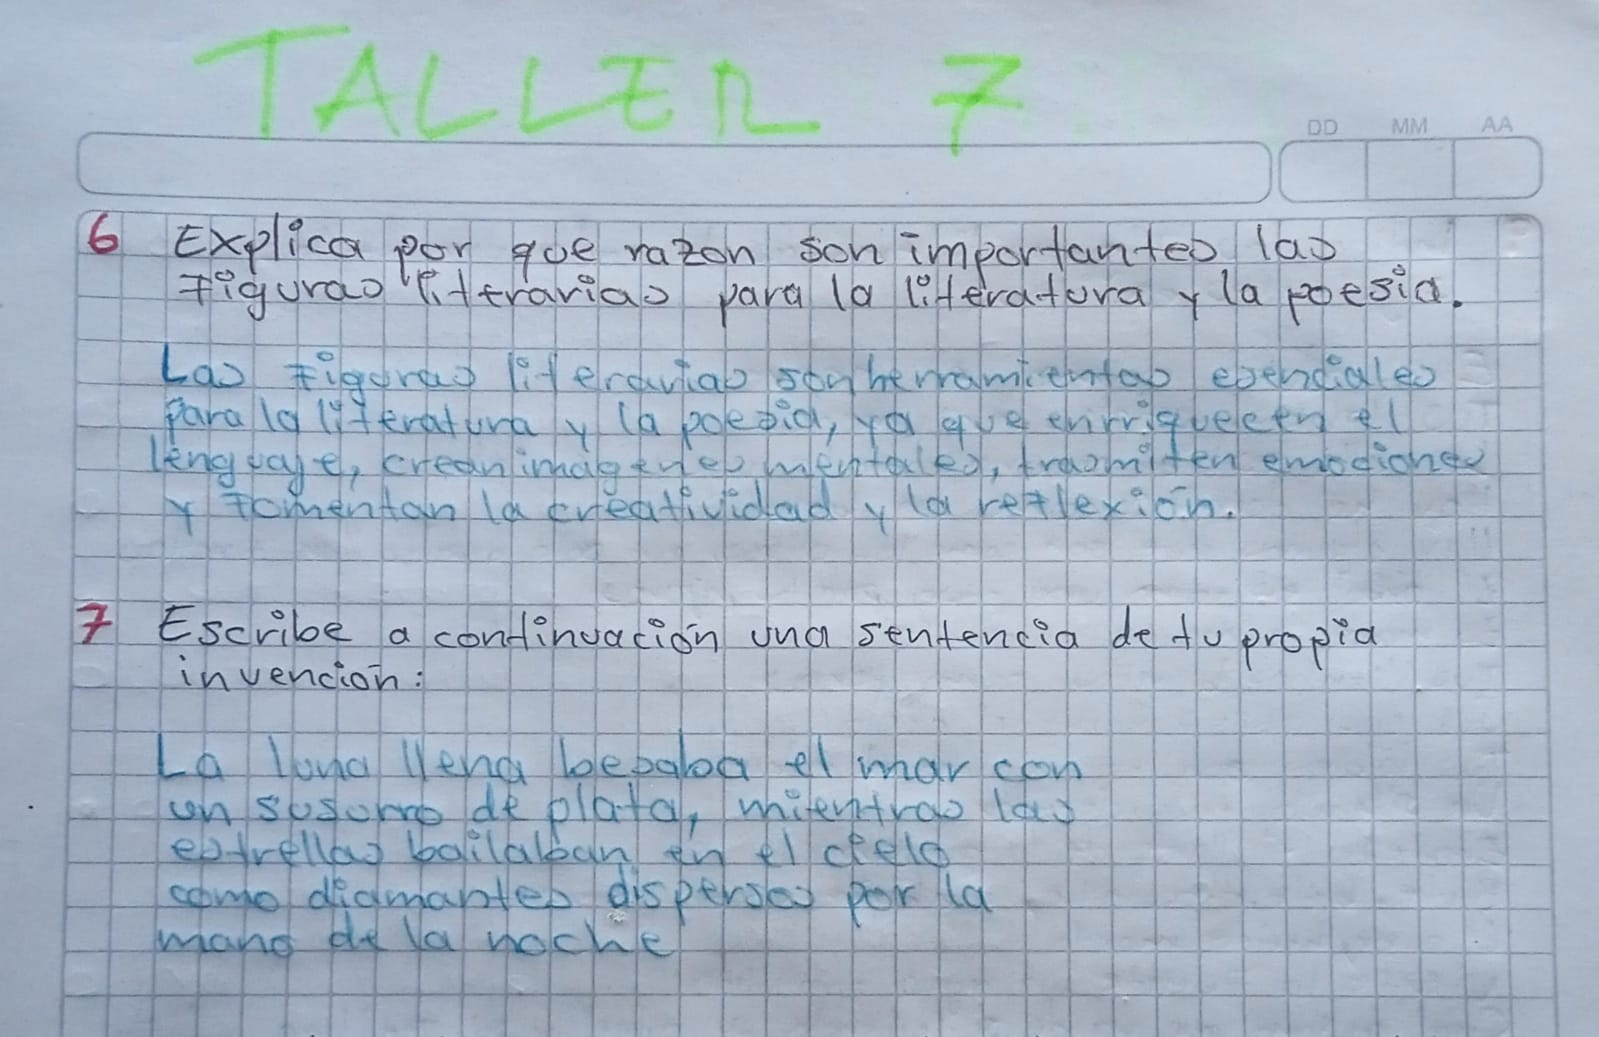 TALLER 7
DD MM AA
6 Explica por que razon son importantes las
figuras literarias para la literatura y la poesia.
Las figuras literarias son herramientas esenciales
para la literatura y la poesia, ya que enrriquecen el
lenguaje, crean imagenes mentales, trasmiten emociones
y fomentan la creatividad y la reflexión.
7 Escribe a continuación una sentencia de tu propia
invención:
La luna llena besaba el mar con
un susurro de plata, mientras las
estrellas bailaban en el cielo
como diamantes dispersos por la
mano de la noche